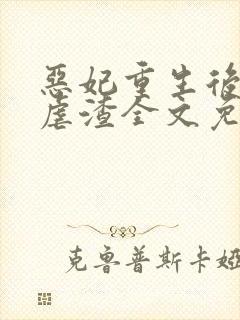 惡妃重生後
虐渣全文免
克魯普斯卡婭